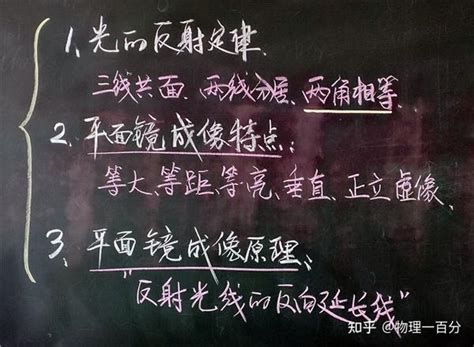 1、光的反射定律.
三线共面、两线分居、两角相等.
2、平面镜成像特点:
等大、等距、等亮、垂直、正立虚像、
3、平面镜成像原理:
"反射光线的反向延长线"
知乎 @物理一百分